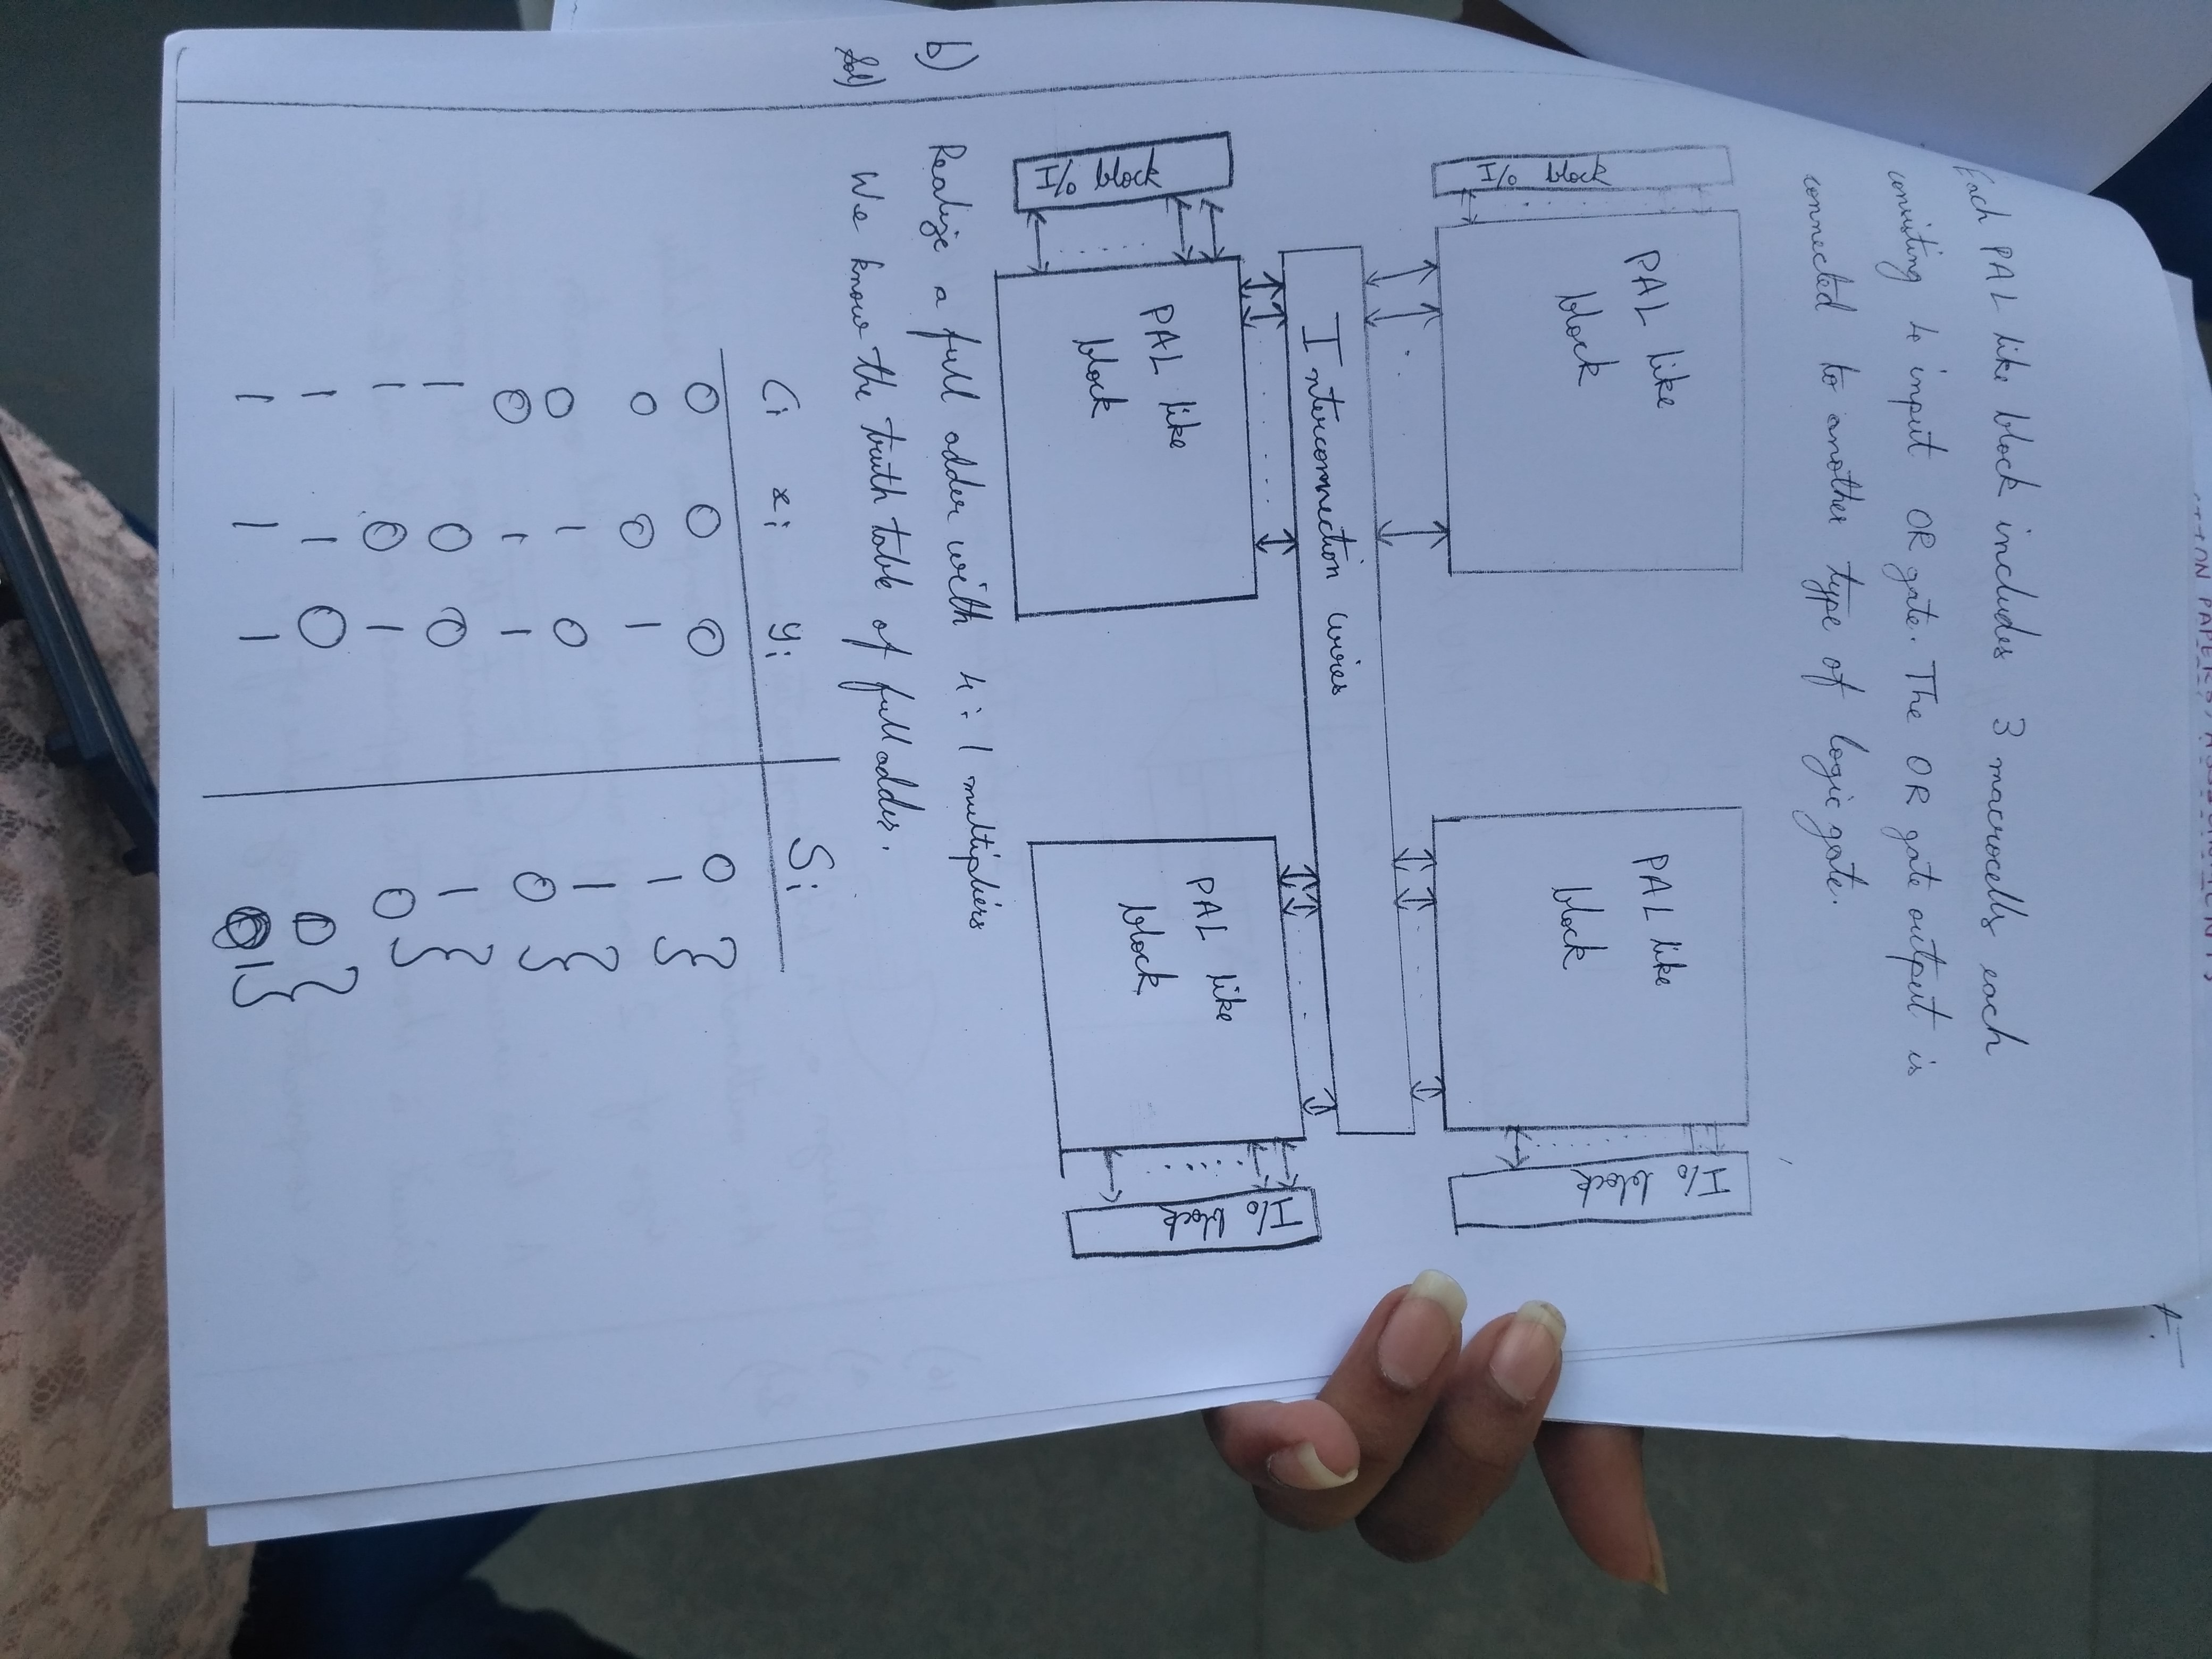 Each PAL like block includes 3 macrocells each
consisting 4 input OR gate. The OR gate output is
connected to another type of logic gate.
I/o block
PAL like
block
PAL like
block
I/o block
Interconnection wires
I/o block
PAL like
block
PAL like
block
I/o block
b) Realize a full adder with 4:1 multipliers
Sol) We know the truth table of full adder.
Ci xi yi Si
0 0 0 0
0 0 1 1
0 1 0 1
0 1 1 0
1 0 0 1
1 0 1 0
1 1 0 0
1 1 1 1